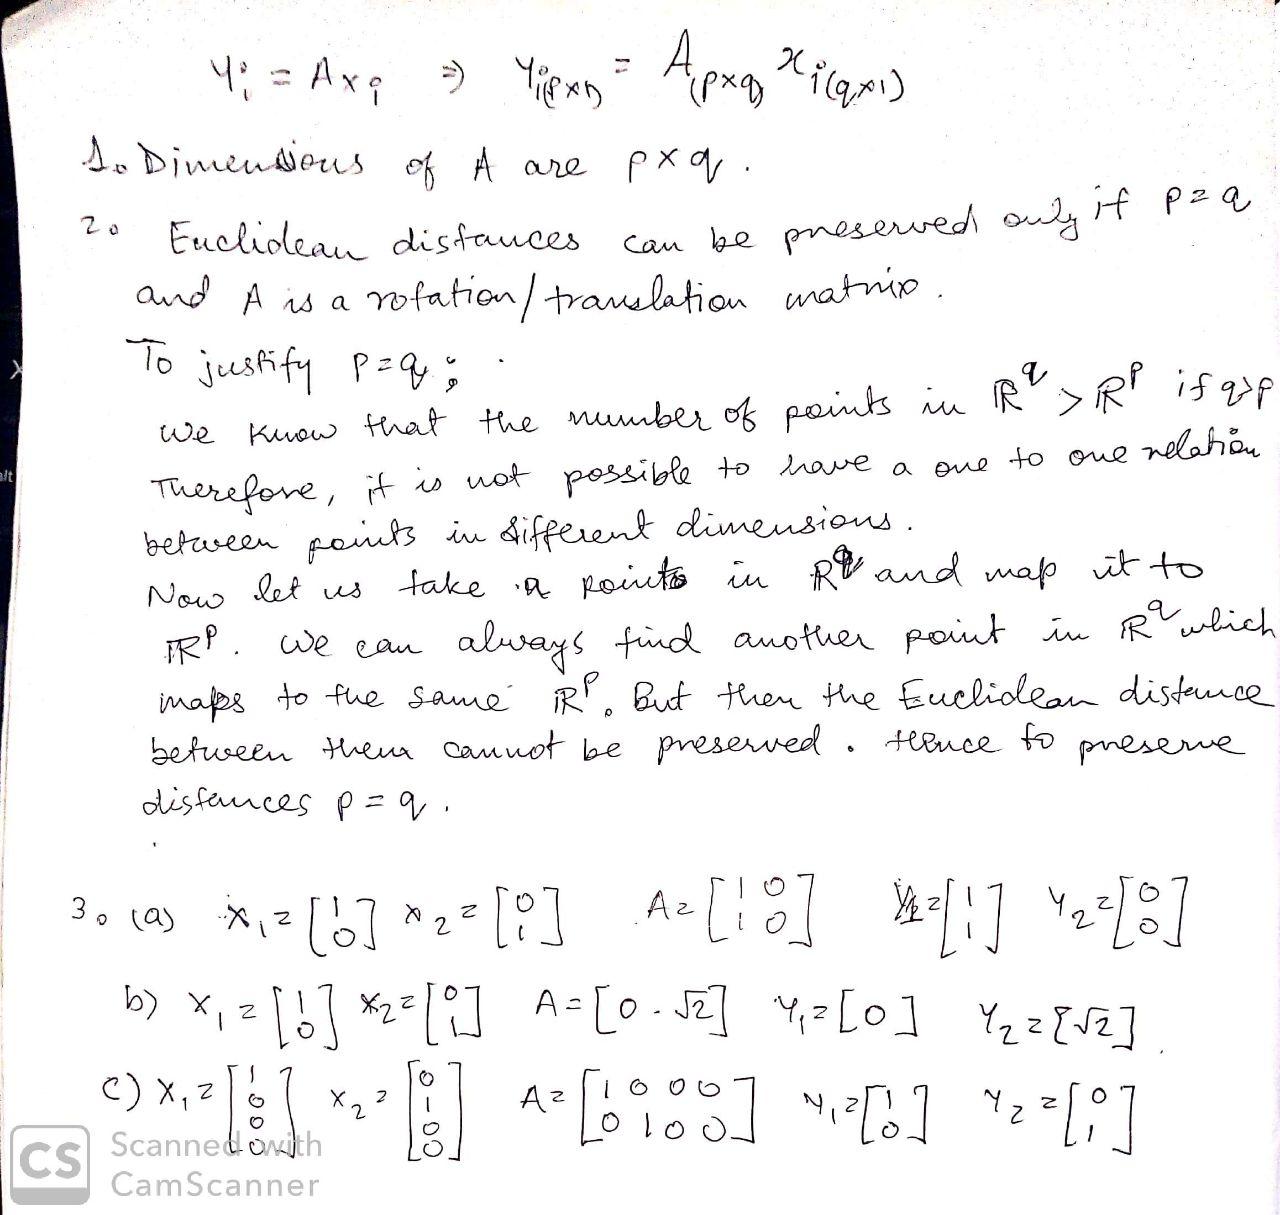 Yi = Axi ⇒ Yi(p×1) = A(p×q) xi(q×1)
1. Dimensions of A are p×q.
2. Euclidean distances can be preserved only if p=q
and A is a rotation/translation matrix.
To justify p=q;
we know that the number of points in ℝ^q > ℝ^p if q>p
Therefore, it is not possible to have a one to one relation
between points in different dimensions.
Now let us take a point in ℝ^q and map it to
ℝ^p. we can always find another point in ℝ^q which
maps to the same ℝ^p. But then the Euclidean distance
between them cannot be preserved. Hence to preserve
distances p=q.
3. (a) x₁=[1; 0] x₂=[0; 1] A=[1 0; 1 0] Y₁=[1; 1] Y₂=[0; 0]
b) x₁=[1; 0] x₂=[0; 1] A=[0 √2] Y₁=[0] Y₂=[√2]
c) x₁=[1; 0; 0; 0] x₂=[0; 1; 0; 0] A=[1 0 0 0; 0 1 0 0] Y₁=[1; 0] Y₂=[0; 1]
CS Scanned with
CamScanner